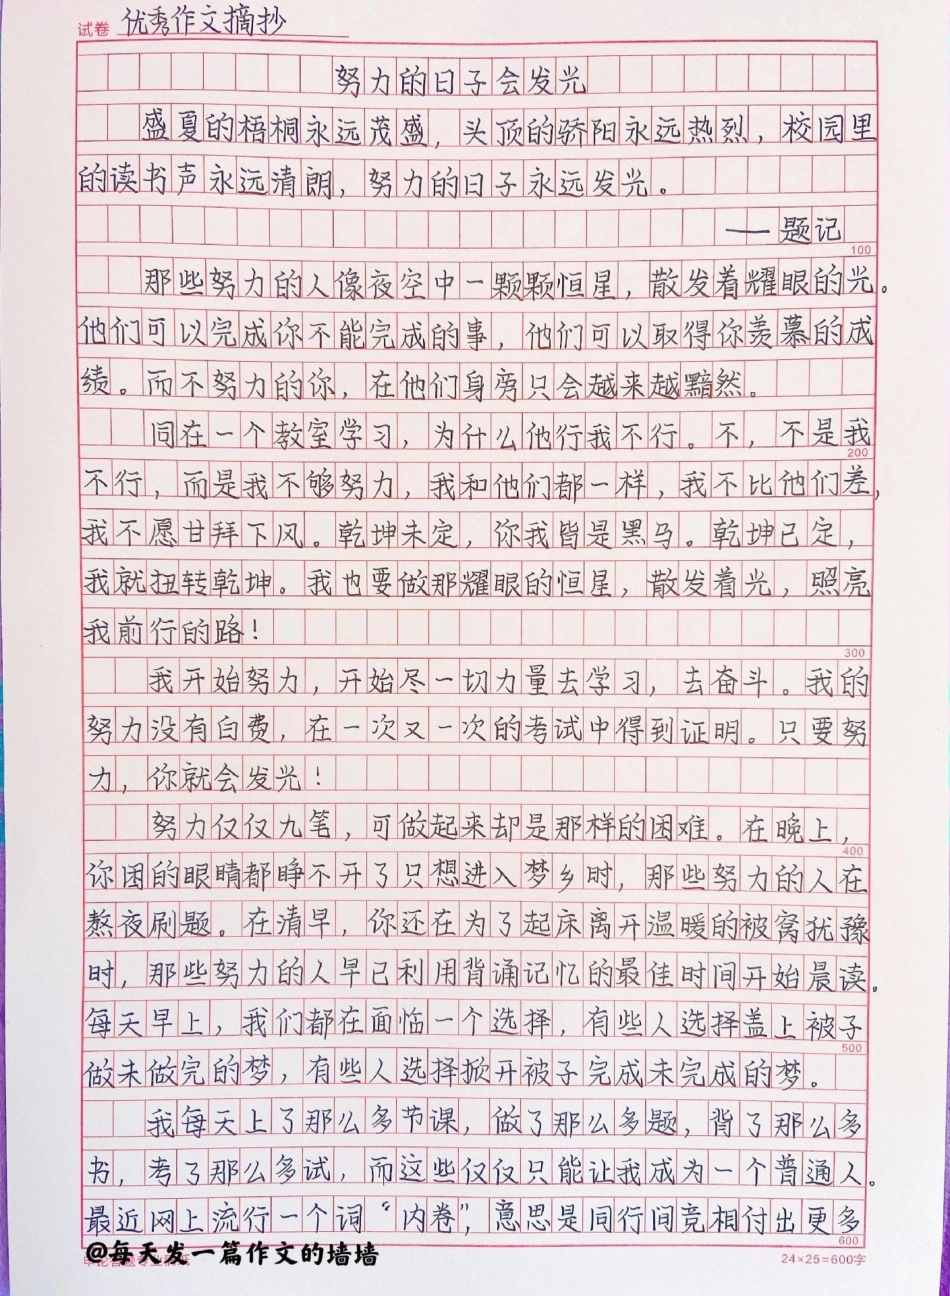 试卷 优秀作文摘抄
努力的日子会发光
盛夏的梧桐永远茂盛，头顶的骄阳永远热烈，校园里
的读书声永远清朗，努力的日子永远发光。
——题记
100
那些努力的人像夜空中一颗颗恒星，散发着耀眼的光。
他们可以完成你不能完成的事，他们可以取得你羡慕的成
绩。而不努力的你，在他们身旁只会越来越黯然。
同在一个教室学习，为什么他行我不行。不，不是我
200
不行，而是我不够努力，我和他们都一样，我不比他们差，
我不愿甘拜下风。乾坤未定，你我皆是黑马。乾坤已定，
我就扭转乾坤。我也要做那耀眼的恒星，散发着光，照亮
我前行的路！
300
我开始努力，开始尽一切力量去学习，去奋斗。我的
努力没有白费，在一次又一次的考试中得到证明。只要努
力，你就会发光！
努力仅仅九笔，可做起来却是那样的困难。在晚上，
400
你困的眼睛都睁不开了只想进入梦乡时，那些努力的人在
熬夜刷题。在清早，你还在为了起床离开温暖的被窝犹豫
时，那些努力的人早已利用背诵记忆的最佳时间开始晨读。
每天早上，我们都在面临一个选择，有些人选择盖上被子
500
做未做完的梦，有些人选择掀开被子完成未完成的梦。
我每天上了那么多节课，做了那么多题，背了那么多
书，考了那么多试，而这些仅仅只能让我成为一个普通人。
最近网上流行一个词“内卷”，意思是同行间竞相付出更多
600
@每天发一篇作文的墙墙
24×25=600字